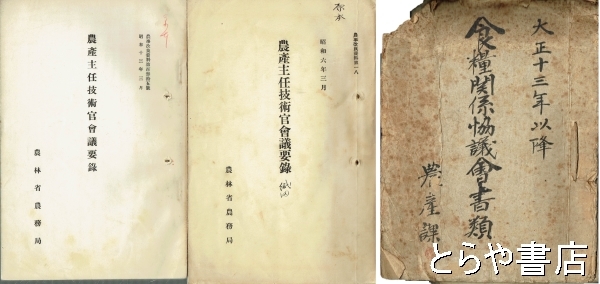 農事改良資料第百參拾五號
昭和十三年三月
農產主任技術官會議要錄
農林省農務局
農事改良資料第一八
昭和六年三月
農產主任技術官會議要錄
農林省農務局
大正十三年以降
食糧関係協議會書類
農產課
とらや書店